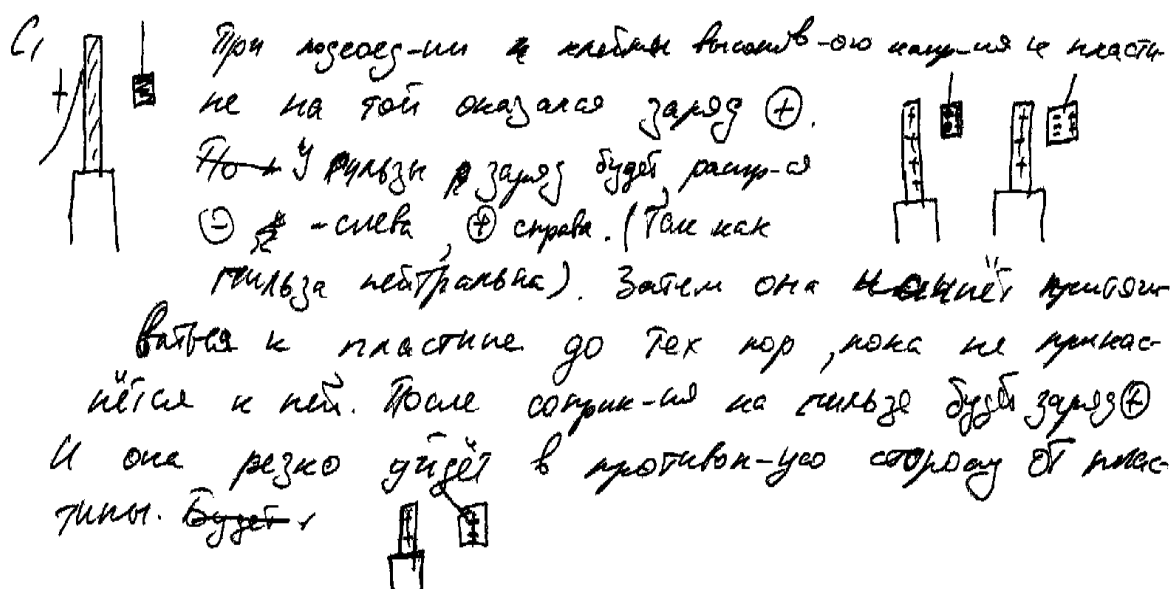 C1 При подсоед-ии клеммы высоков-ого напр-ия к пласти
не на той оказался заряд ⊕.
У гильзы заряд будет распр-ся
⊖ - слева, ⊕ справа. (Так как
гильза нейтральна). Затем она начнёт притяги
ваться к пластине до тех пор, пока не прикас-
нётся к ней. После соприк-ия на гильзе будет заряд ⊕
И она резко уйдёт в противоп-ую сторону от плас-
тины. Будет